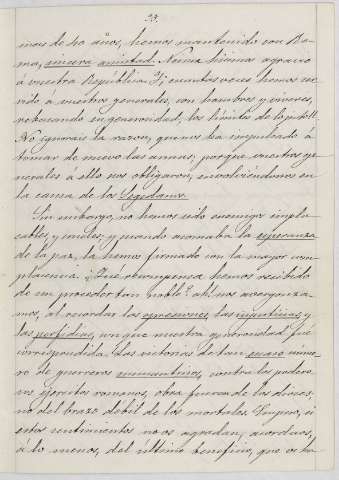 23.
mas de 40 años, hemos mantenido con Ro-
ma, sincera amistad. No hicimos agravio
á vuestra República. Y; cuantas veces hemos ser-
vido á vuestros generales, con hombres y víveres,
rebasando en generosidad, los límites de lo justo!!.
No ignorais la razon, que nos ha impulsado á
tomar de nuevo las armas; porque vuestros ge-
nerales á ello nos obligaron, envolviéndonos en
la causa de los Segedanos.
Sin embargo, no hemos sido enemigos impla-
cables, y crueles; y cuando asomaba la esperanza
de la paz, la hemos firmado con la mayor com-
placencia. ¿Qué recompensa hemos recibido
de un proceder tan noble? ah! nos avergonza-
mos, al recordar las opresiones, las injusticias, y
las perfidias, con que nuestra generosidad fué
correspondida. Las victorias de tan escaso nume-
ro de guerreros numantinos, contra los podero-
sos ejercitos romanos, obra fueron de los dioses,
no del brazo débil de los mortales. Empero, si
estos sentimientos no os agradan, acordaos,
á lo menos, del último beneficio, que os hi-